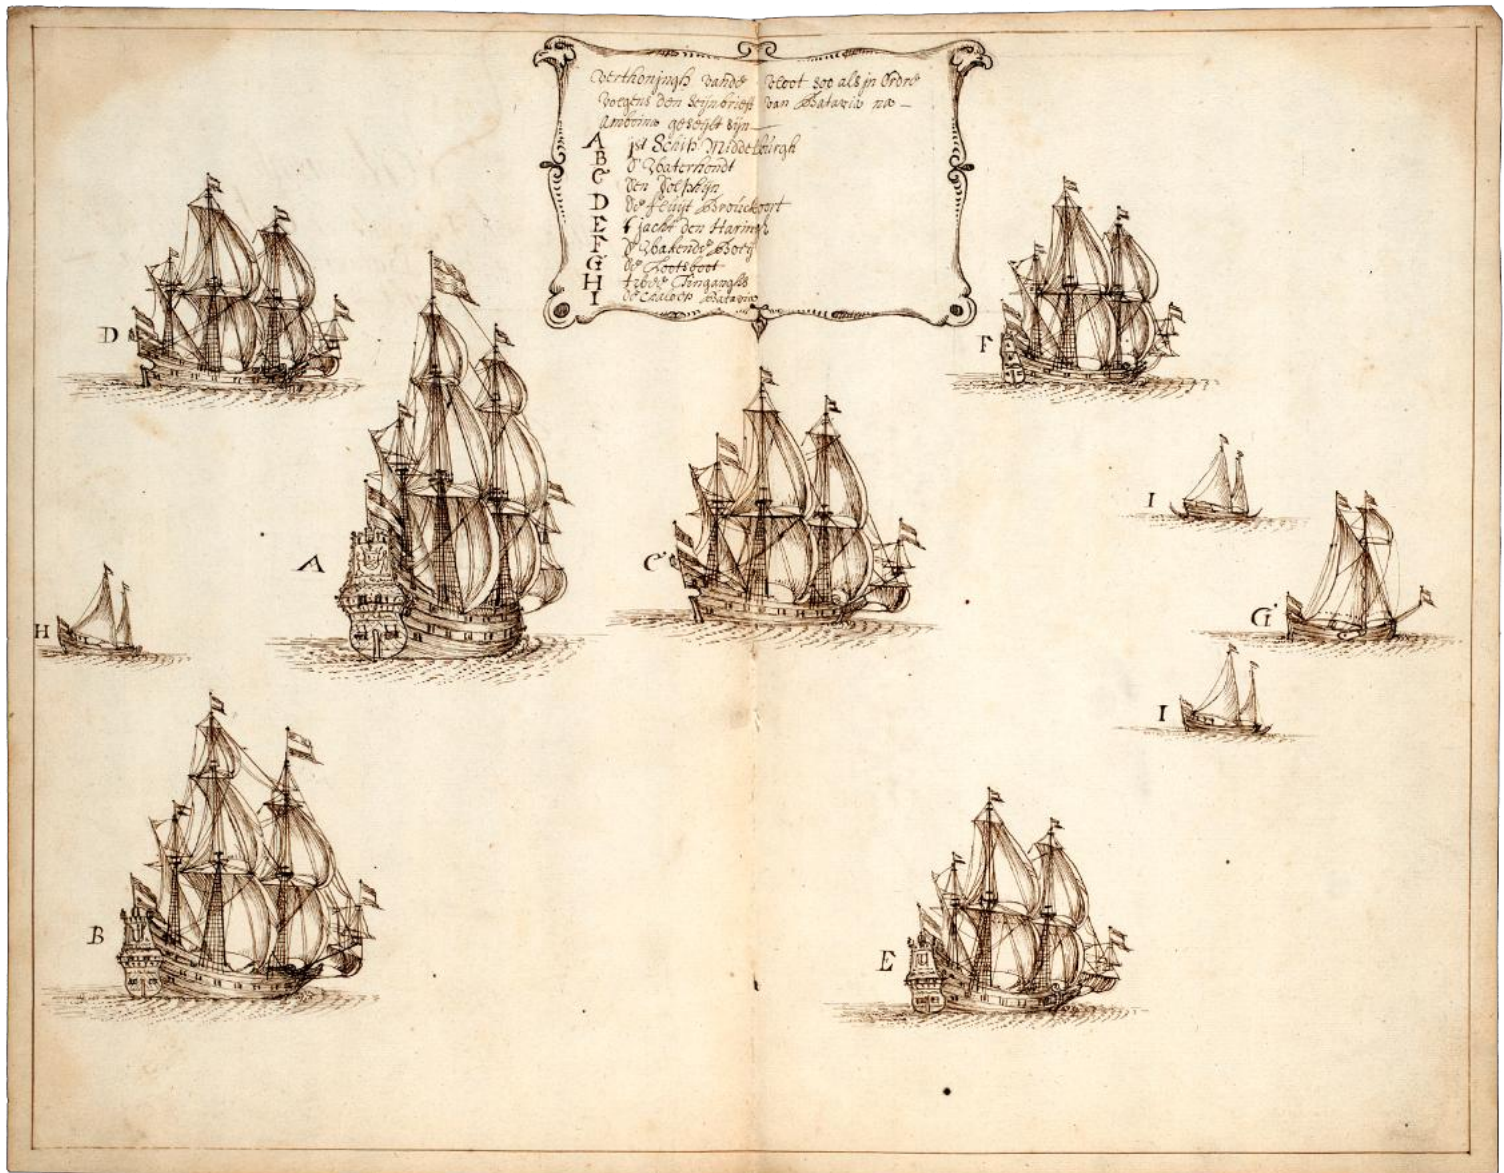 Verthoningh vande vloot soo als in Ordre
volgens den Seijnbrieff van Batavia na
Amboina geseijlt sijn
A jst Schip Middelburgh
B d' Waterhondt
C den Dolphijn
D de fluijt Brouckoort
E t jacht den Haringh
F d' Wakende Boeij
G de Lootsboot
H twee Tinganghs
I de Chaloep Batavia
D
F
I
A
C
G
H
I
B
E